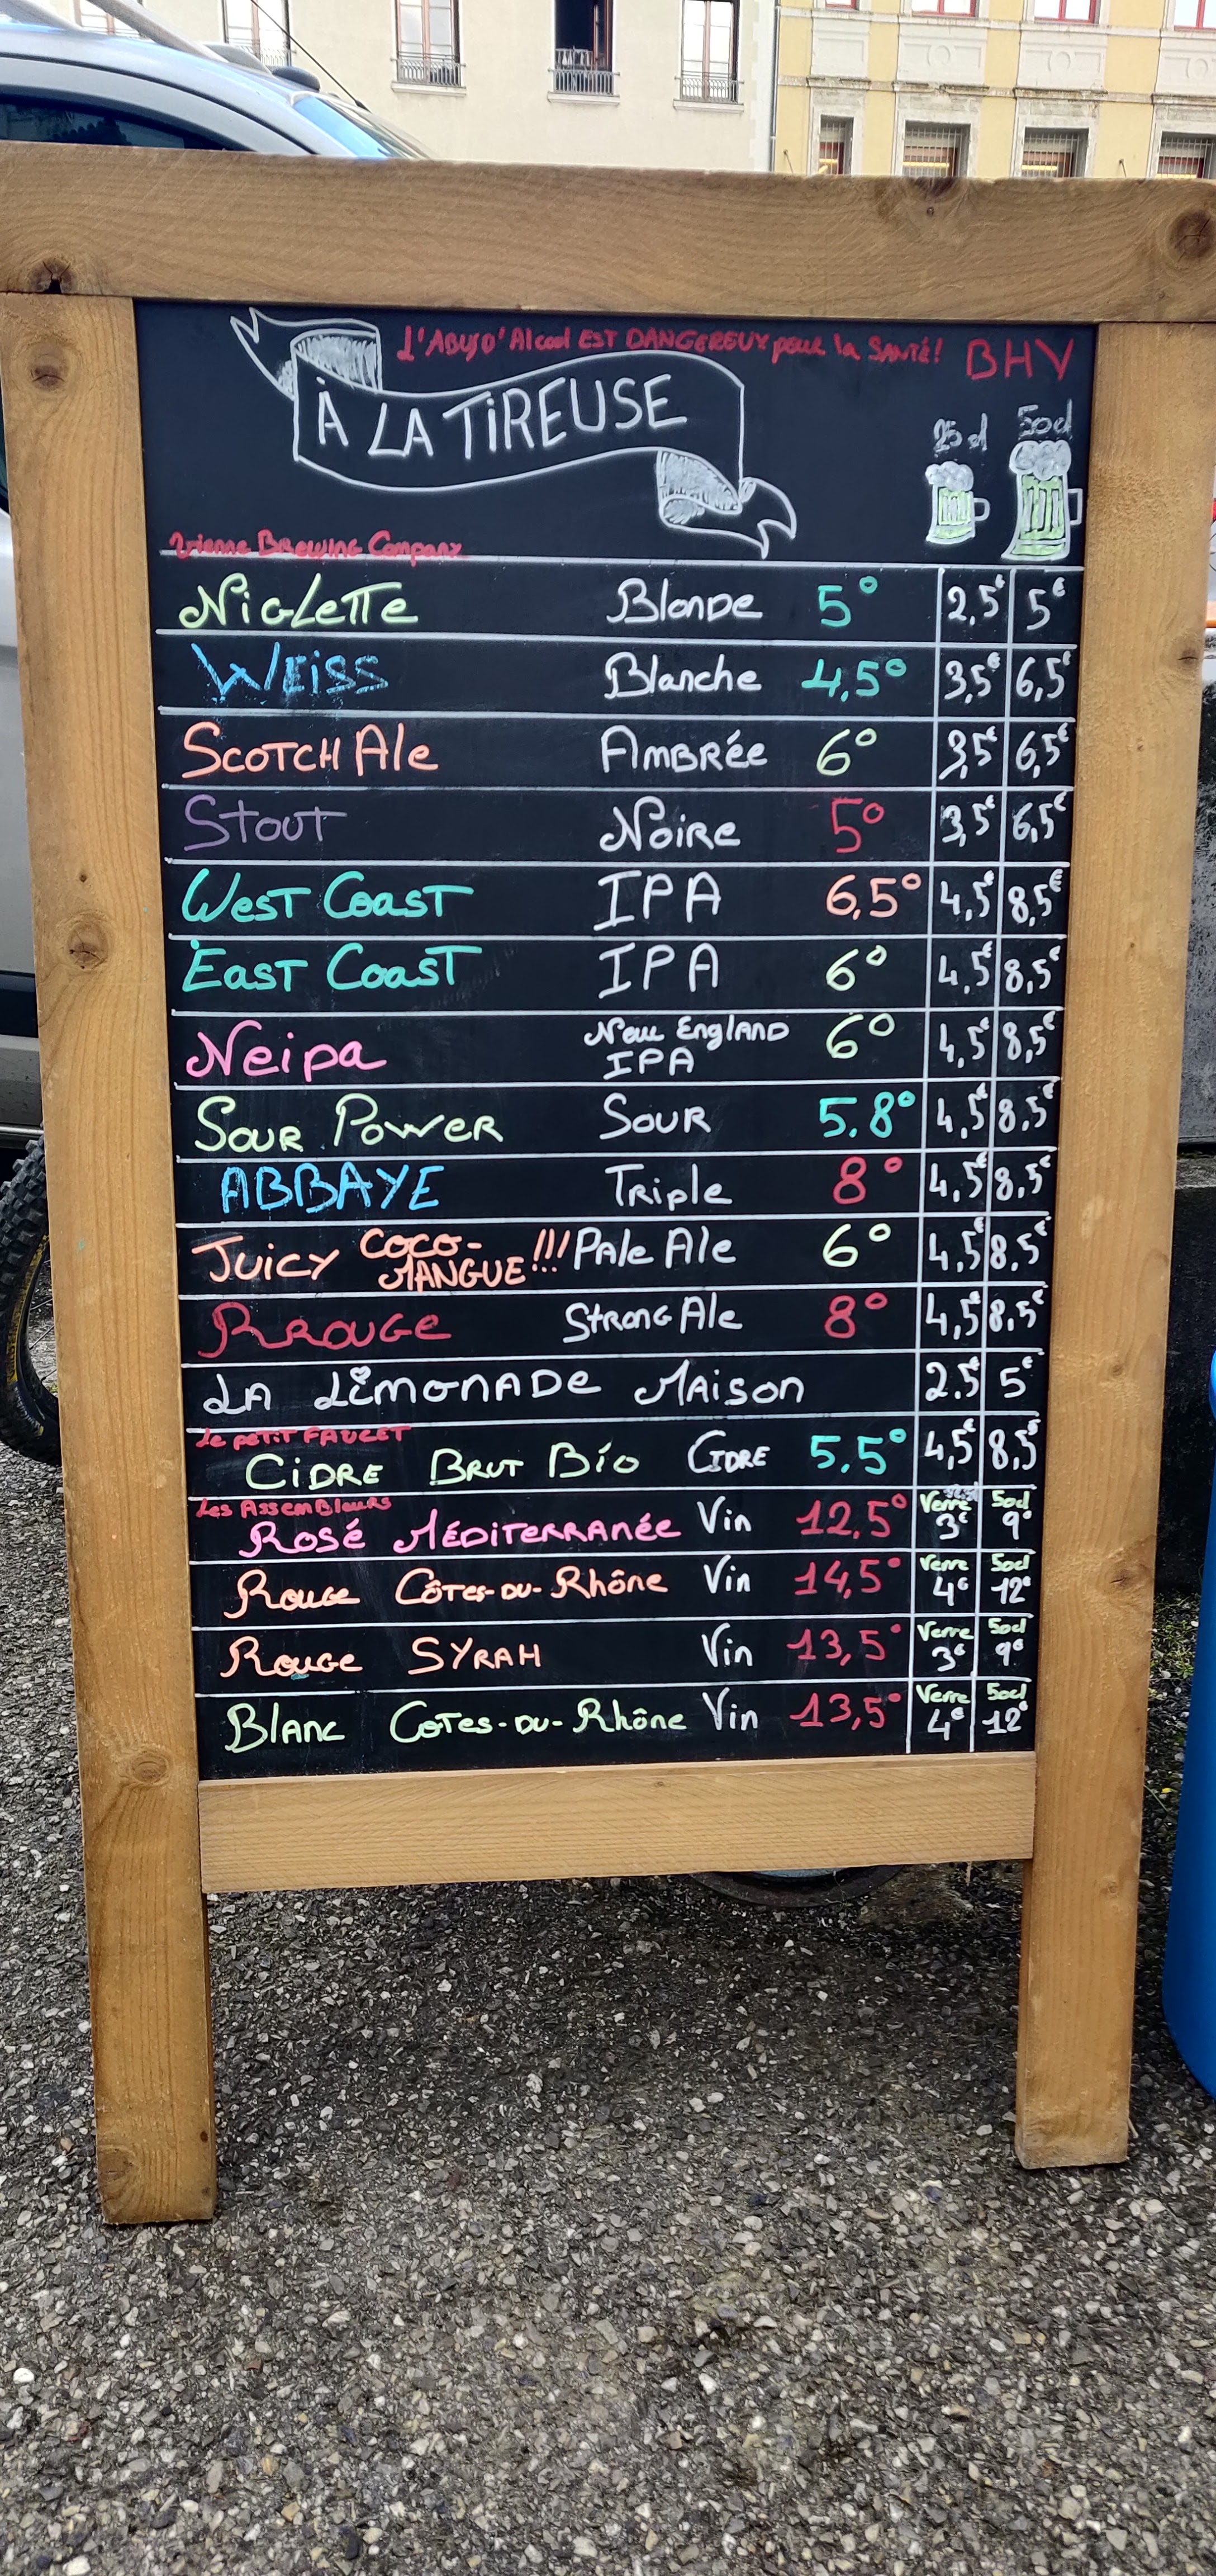 L'Abus D'Alcool EST DANGEREUX pour la SANTÉ! BHV
À LA TIREUSE
25cl 50cl
Vienne Brewing Company
Niglette Blonde 5° 2,5€ 5€
Weiss Blanche 4,5° 3,5€ 6,5€
Scotch Ale Ambrée 6° 3,5€ 6,5€
Stout Noire 5° 3,5€ 6,5€
West Coast IPA 6,5° 4,5€ 8,5€
East Coast IPA 6° 4,5€ 8,5€
Neipa New England IPA 6° 4,5€ 8,5€
Sour Power Sour 5.8° 4,5€ 8,5€
ABBAYE Triple 8° 4,5€ 8,5€
Juicy Coco-Mangue!!! Pale Ale 6° 4,5€ 8,5€
Rrouge Strong Ale 8° 4,5€ 8,5€
La Limonade Maison 2.5€ 5€
Le petit FAUCET
Cidre Brut Bio Cidre 5.5° 4,5€ 8,5€
Les Assembleurs
Rosé Méditerranée Vin 12,5° Verre 3€ 50cl 9€
Rouge Côtes-du-Rhône Vin 14,5° Verre 4€ 50cl 12€
Rouge SYRAH Vin 13,5° Verre 3€ 50cl 9€
Blanc Côtes-du-Rhône Vin 13,5° Verre 4€ 50cl 12€